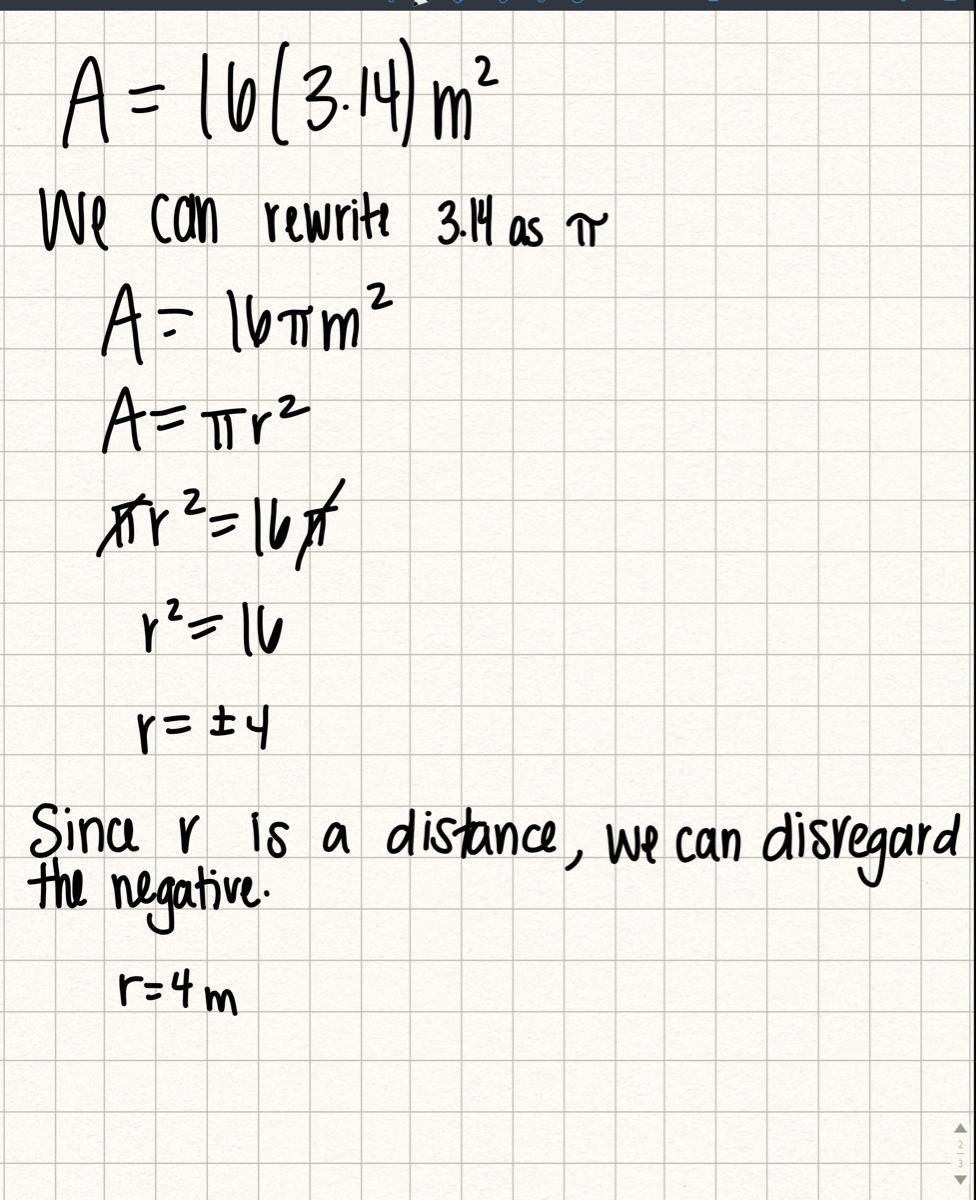 A = 16(3.14) m²
We can rewrite 3.14 as π
A = 16πm²
A = πr²
πr² = 16π
r² = 16
r = ±4
Since r is a distance, we can disregard
the negative.
r = 4 m
2
3